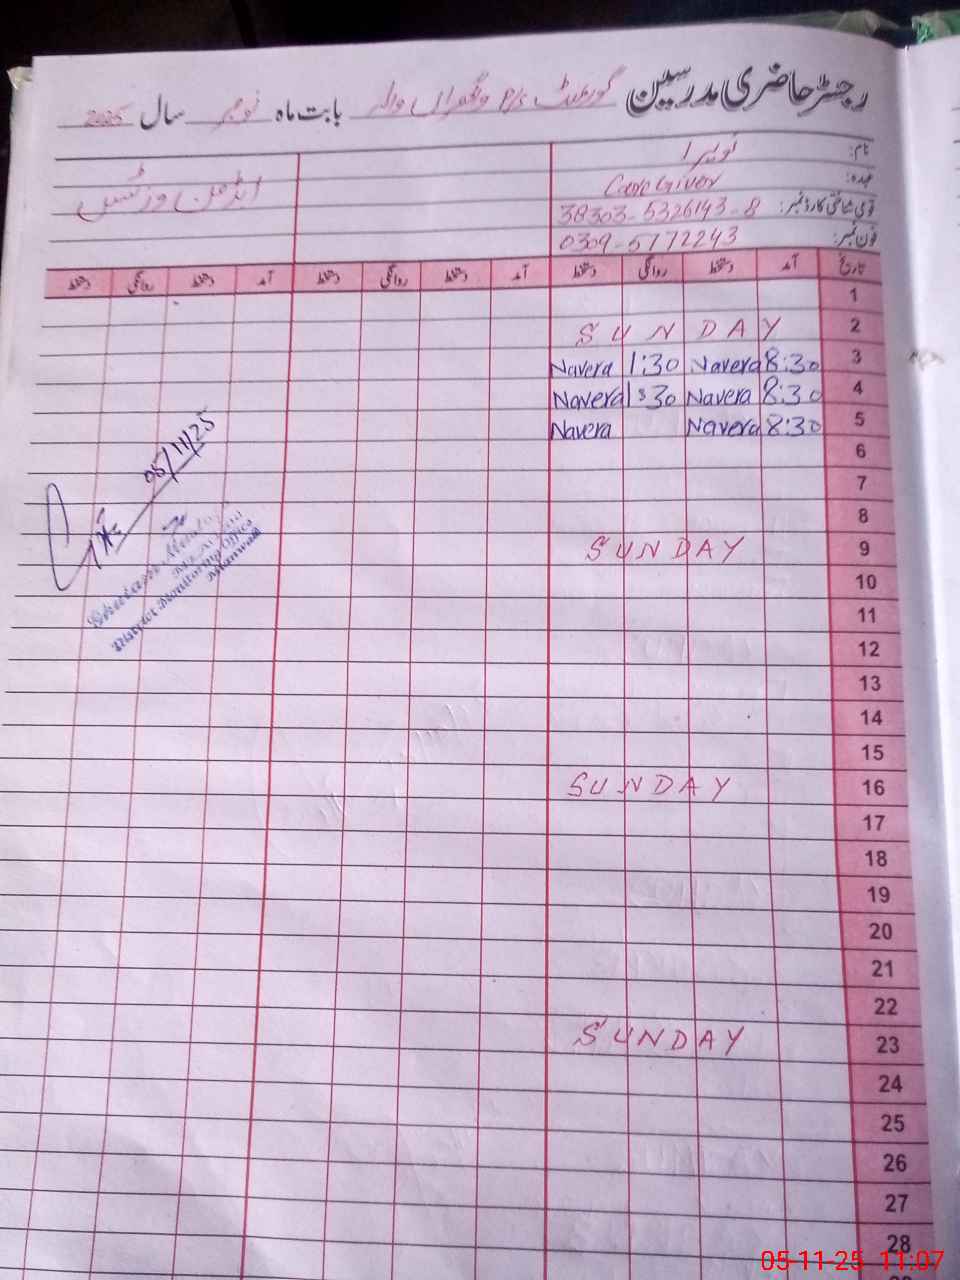 رجسٹر حاضری مدرسین گورنمنٹ P/S وگھراں والہ بابت ماہ نومبر سال 2025
نام: نویرا
عہدہ: Care Giver
قومی شناختی کارڈ نمبر: 38303-5326143-8
فون نمبر: 0309-5172243
ایڈمن وزٹس
تاریخ آمد دستخط روانگی دستخط آمد دستخط روانگی دستخط آمد دستخط روانگی دستخط
1
2 SUNDAY
3 8:30 Navera 1:30 Navera
4 8:30 Navera 1:30 Navera
5 8:30 Navera Navera
6
7
8
9 SUNDAY
10
11
12
13
14
15
16 SUNDAY
17
18
19
20
21
22
23 SUNDAY
24
25
26
27
28
05/11/25
District Monitoring Office
Mianwali
05-11-25 11:07